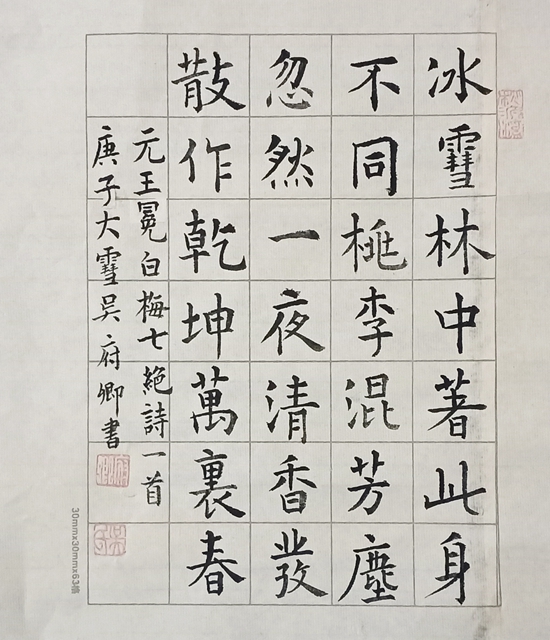 冰雪林中著此身
不同桃李混芳塵
忽然一夜清香發
散作乾坤萬裏春
元王冕白梅七絕詩一首
庚子大雪吳府卿書
30mmx30mmx63格